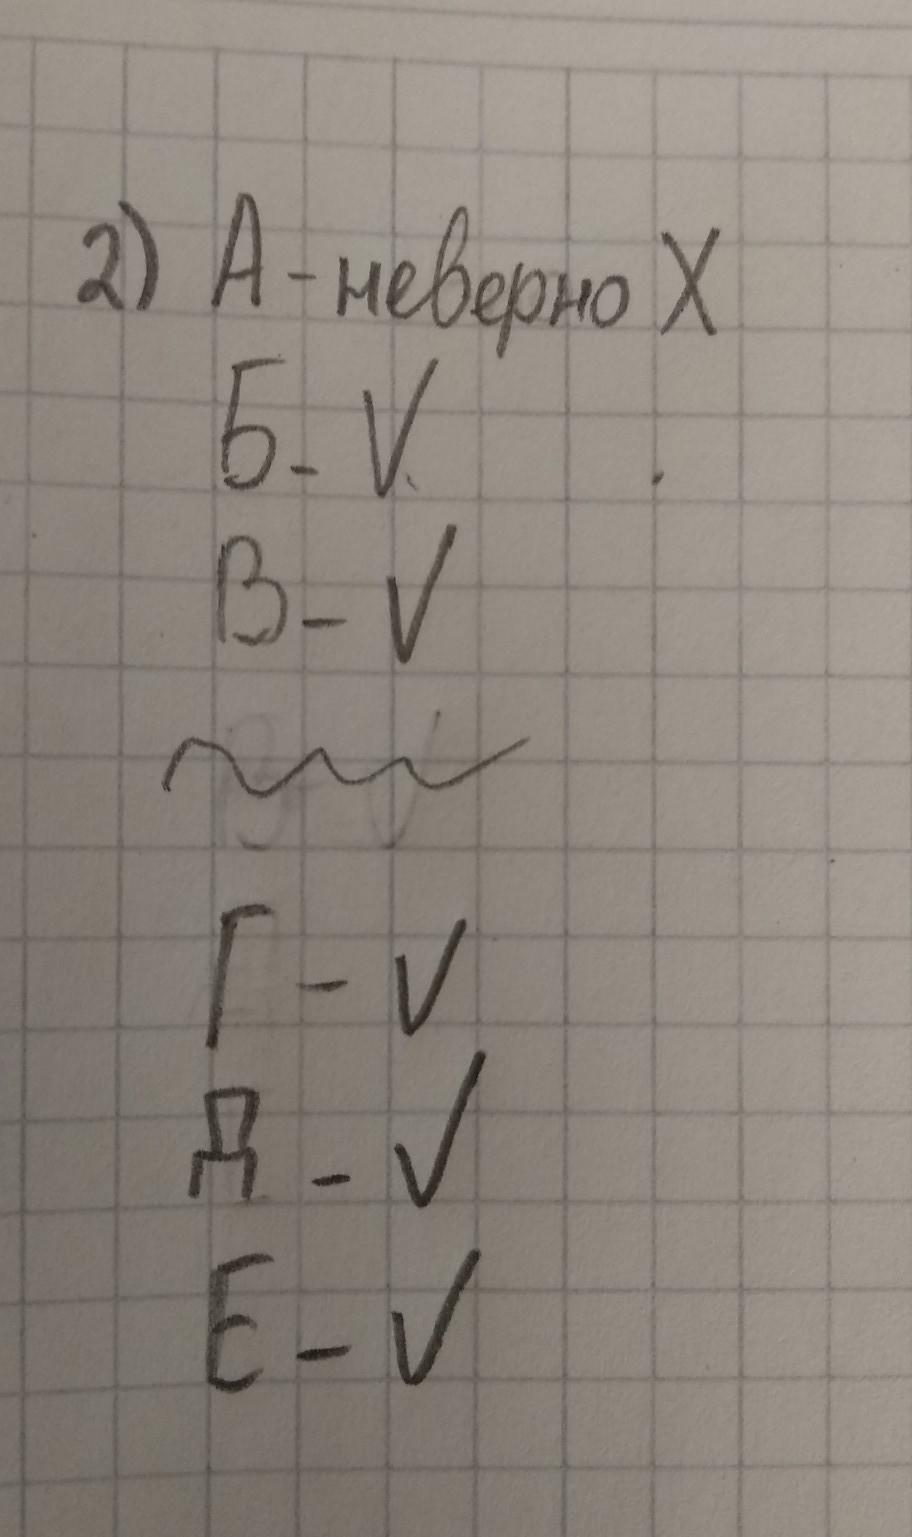 2) А - неверно X
Б - V
В - V
Г - V
Д - V
Е - V